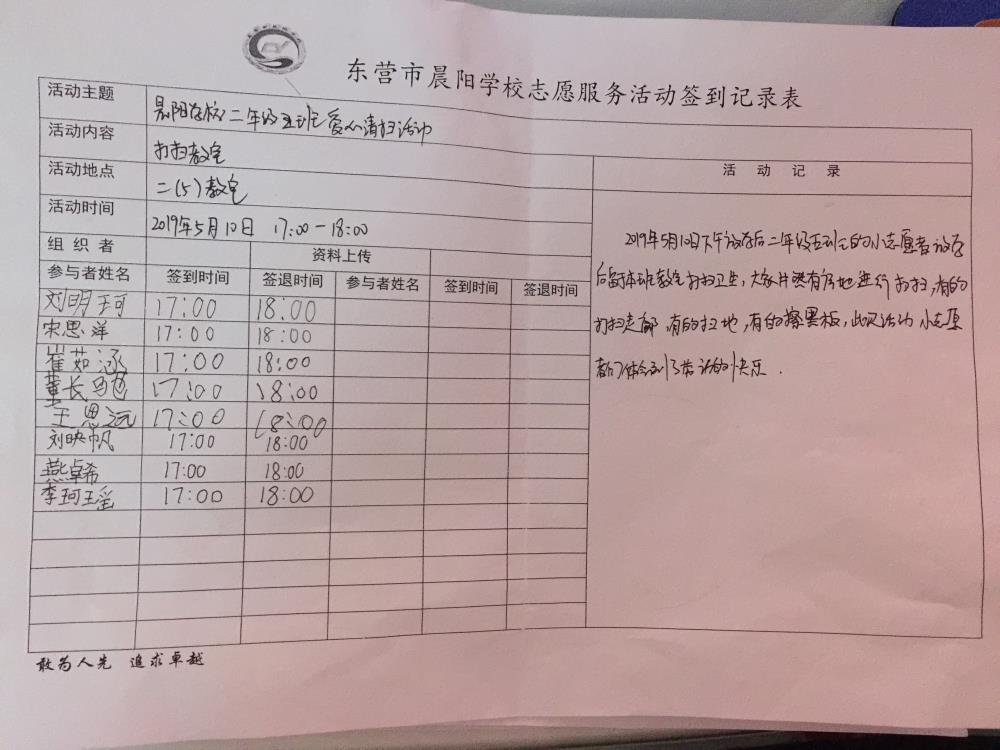 东营市晨阳学校志愿服务活动签到记录表
活动主题 晨阳学校二年级五班爱心清扫活动
活动内容 打扫教室
活动地点 二(5)教室
活动时间 2019年5月10日 17:00-18:00
活动记录
组织者 资料上传
参与者姓名 签到时间 签退时间 参与者姓名 签到时间 签退时间
刘明珂 17:00 18:00
宋思洋 17:00 18:00
崔茹涵 17:00 18:00
董长 17:00 18:00
王思远 17:00 18:00
刘映帆 17:00 18:00
燕卓希 17:00 18:00
李珂瑶 17:00 18:00
2019年5月10日下午放学后二年级五班的小志愿者放学
后留在本班教室打扫卫生,大家井然有序地进行打扫,有的
打扫走廊,有的扫地,有的擦黑板,此次活动小志愿
者们体会到了劳动的快乐.
敢为人先 追求卓越